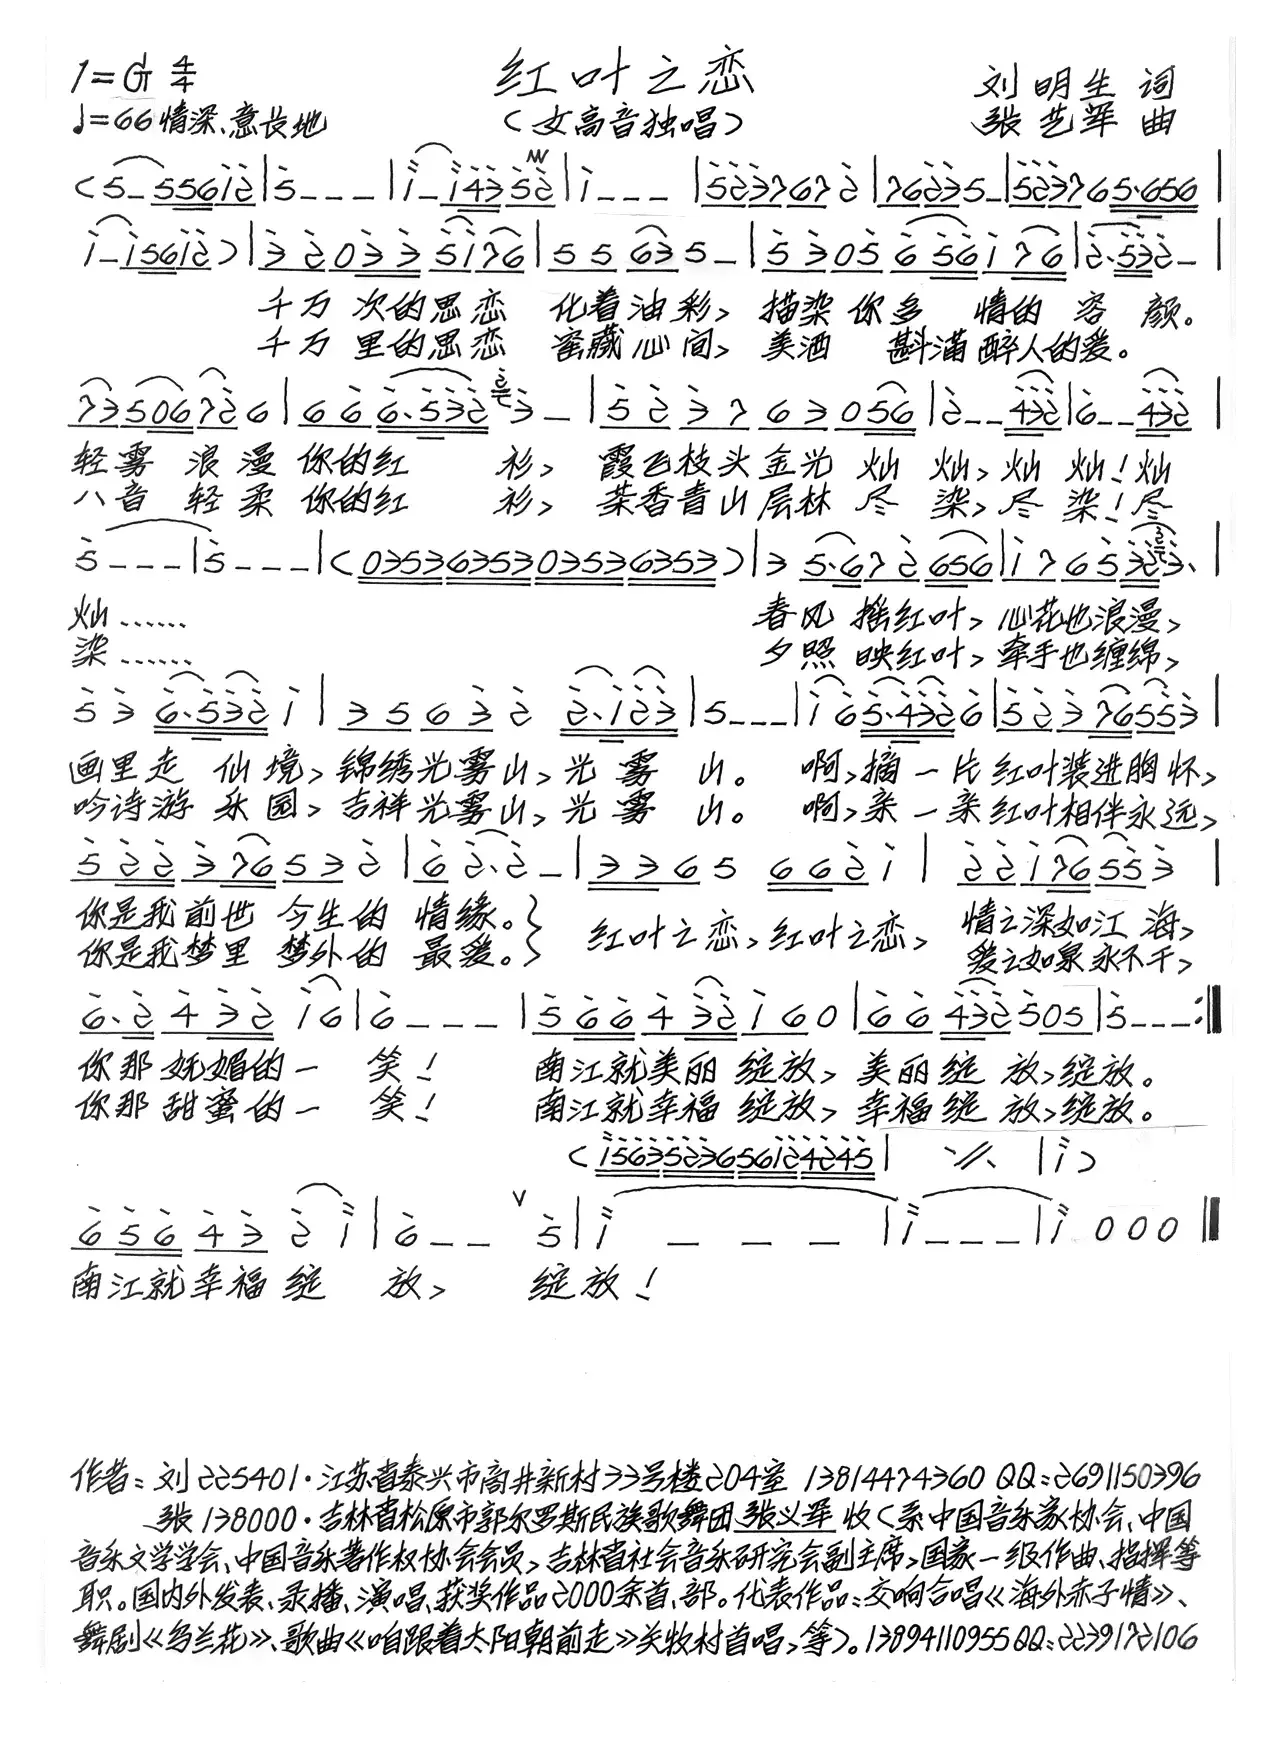 1=G 4/4 红叶之恋 刘明生 词
♩=66 情深、意长地 (女高音独唱) 张艺军 曲
(5-55612|5---|i-i4352|i---|5237672|76235-|523765·656|
i-i5612)|320335176|55635-|5305656176|2·532-|
千万 次的思恋 化着油彩, 描染你多 情的 容 颜。
千万 里的思恋 蜜藏心间, 美酒 斟满醉人的爱。
73506726|666·5323-|523763056|2--432|6--432|
轻雾 浪漫 你的红 衫, 霞飞枝头金光 灿 灿, 灿 灿! 灿
八音 轻柔 你的红 衫, 茶香青山层林 尽 染, 尽 染! 尽
5---|5---|(0353635303536353)|35·672656|1765323·|
灿…… 春风 摇红叶, 心花也浪漫,
染…… 夕照 映红叶, 牵手也缠绵,
536·5321|356322·123|5---|i65·4326|52376553|
画里走 仙境, 锦绣光雾山, 光 雾 山。 啊, 摘一片红叶装进胸怀,
吟诗游 乐园, 吉祥光雾山, 光 雾 山。 啊, 亲一亲红叶相伴永远,
522376532|62·2-|33656621|22176553|
你是我前世 今生的 情缘。} 红叶之恋, 红叶之恋, 情之深如江 海,
你是我梦里 梦外的 最爱。 爱之如泉永不干,
6·243216|6---|566432160|66432505|5---:‖
你那妩媚的一 笑! 南江就美丽 绽放, 美丽绽 放, 绽放。
你那甜蜜的一 笑! 南江就幸福 绽放, 幸福绽 放, 绽放。
(i563523656124245| ·//· |i)
6564321|6-- ∨ 5|i - - -|i---|i000‖
南江就幸福 绽 放, 绽放!
作者: 刘 225401·江苏省泰兴市高井新村33号楼204室 13814474360 QQ:2691150396
张 138000·吉林省松原市郭尔罗斯民族歌舞团 张义军 收 (系中国音乐家协会、中国
音乐文学学会、中国音乐著作权协会会员, 吉林省社会音乐研究会副主席, 国家一级作曲、指挥等
职。国内外发表、录播、演唱、获奖作品2000余首、部。代表作品: 交响合唱《海外赤子情》、
舞剧《乌兰花》、歌曲《咱跟着太阳朝前走》关牧村首唱, 等)。13894110955 QQ:2239172106